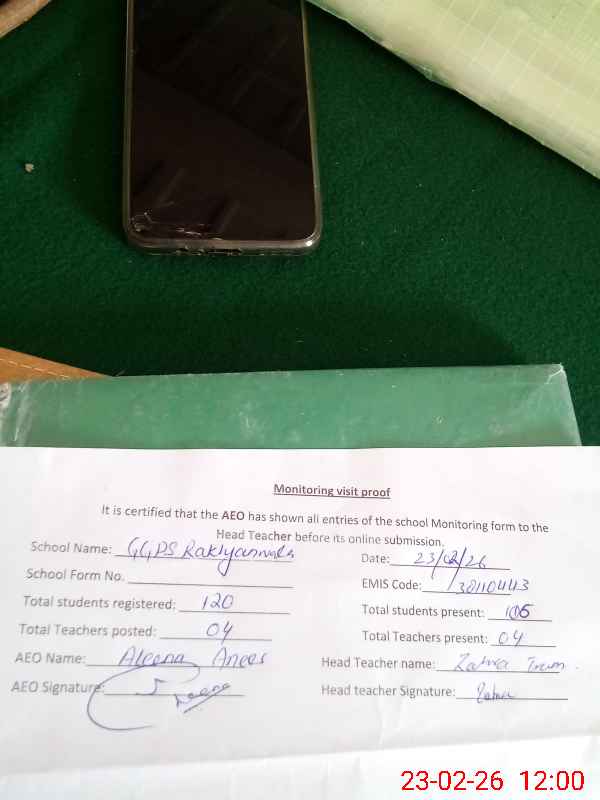 Monitoring visit proof
It is certified that the AEO has shown all entries of the school Monitoring form to the
Head Teacher before its online submission.
School Name: GGPS Rakhyannala Date: 23/02/26
School Form No. EMIS Code: 38110443
Total students registered: 120 Total students present: 105
Total Teachers posted: 04 Total Teachers present: 04
AEO Name: Aleena Anees Head Teacher name: Zahra Iram.
AEO Signature: Aleena Head teacher Signature: Zahra
23-02-26 12:00